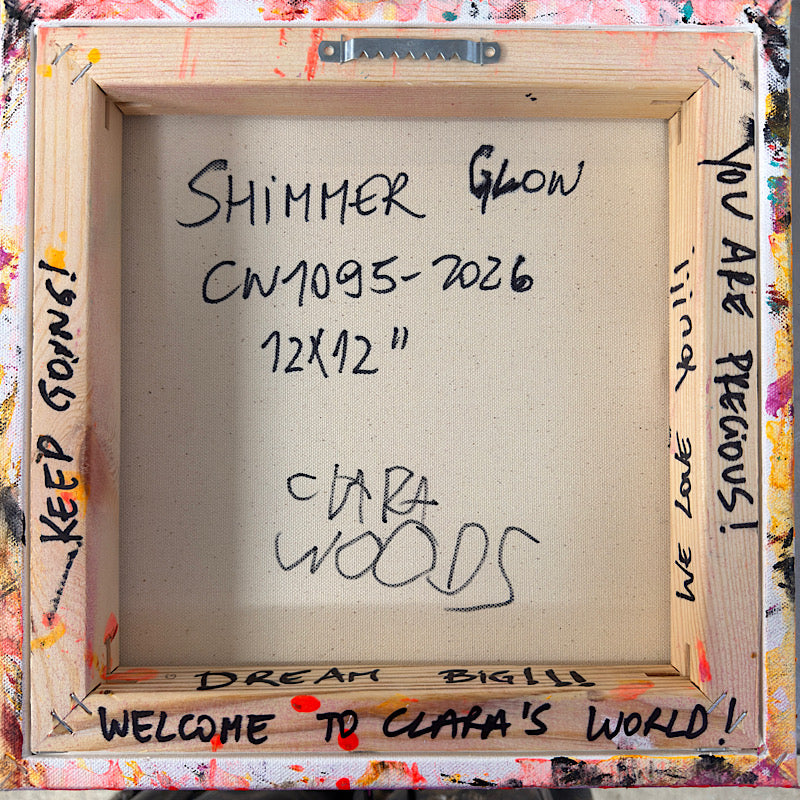 SHIMMER GLOW
CW1095-2026
12X12"
CLARA
WOODS
KEEP GOING!
YOU ARE PRECIOUS!
WE LOVE YOU!!!
DREAM BIG!!!
WELCOME TO CLARA'S WORLD!